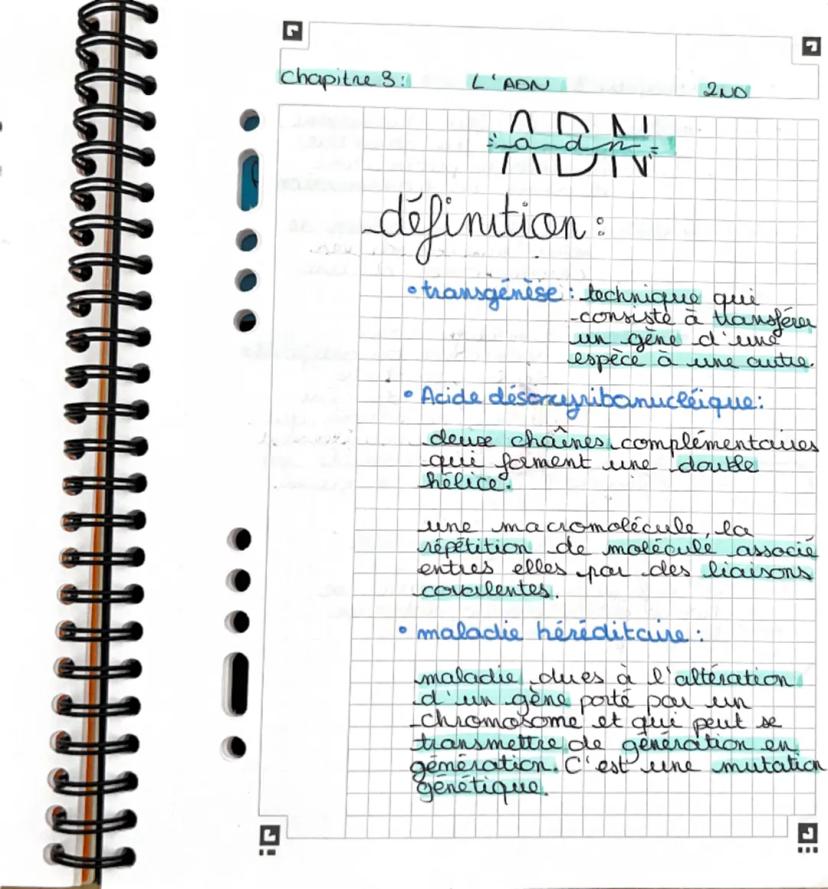 Chapitre 3: L'ADN 2ND
ADN
adn
définition :
• transgénèse : technique qui
consiste à transférer
un gène d'une
espèce à une autre.
• Acide désoxyribonucléique :
deux chaînes complémentaires
qui forment une double
hélice.
une macromolécule, la
répétition de molécule associé
entres elles par des liaisons
covalentes.
• maladie héréditaire :
maladie dues à l'altération
d'un gène porté par un
chromosome et qui peut se
transmettre de génération en
génération. C'est une mutation
génétique.